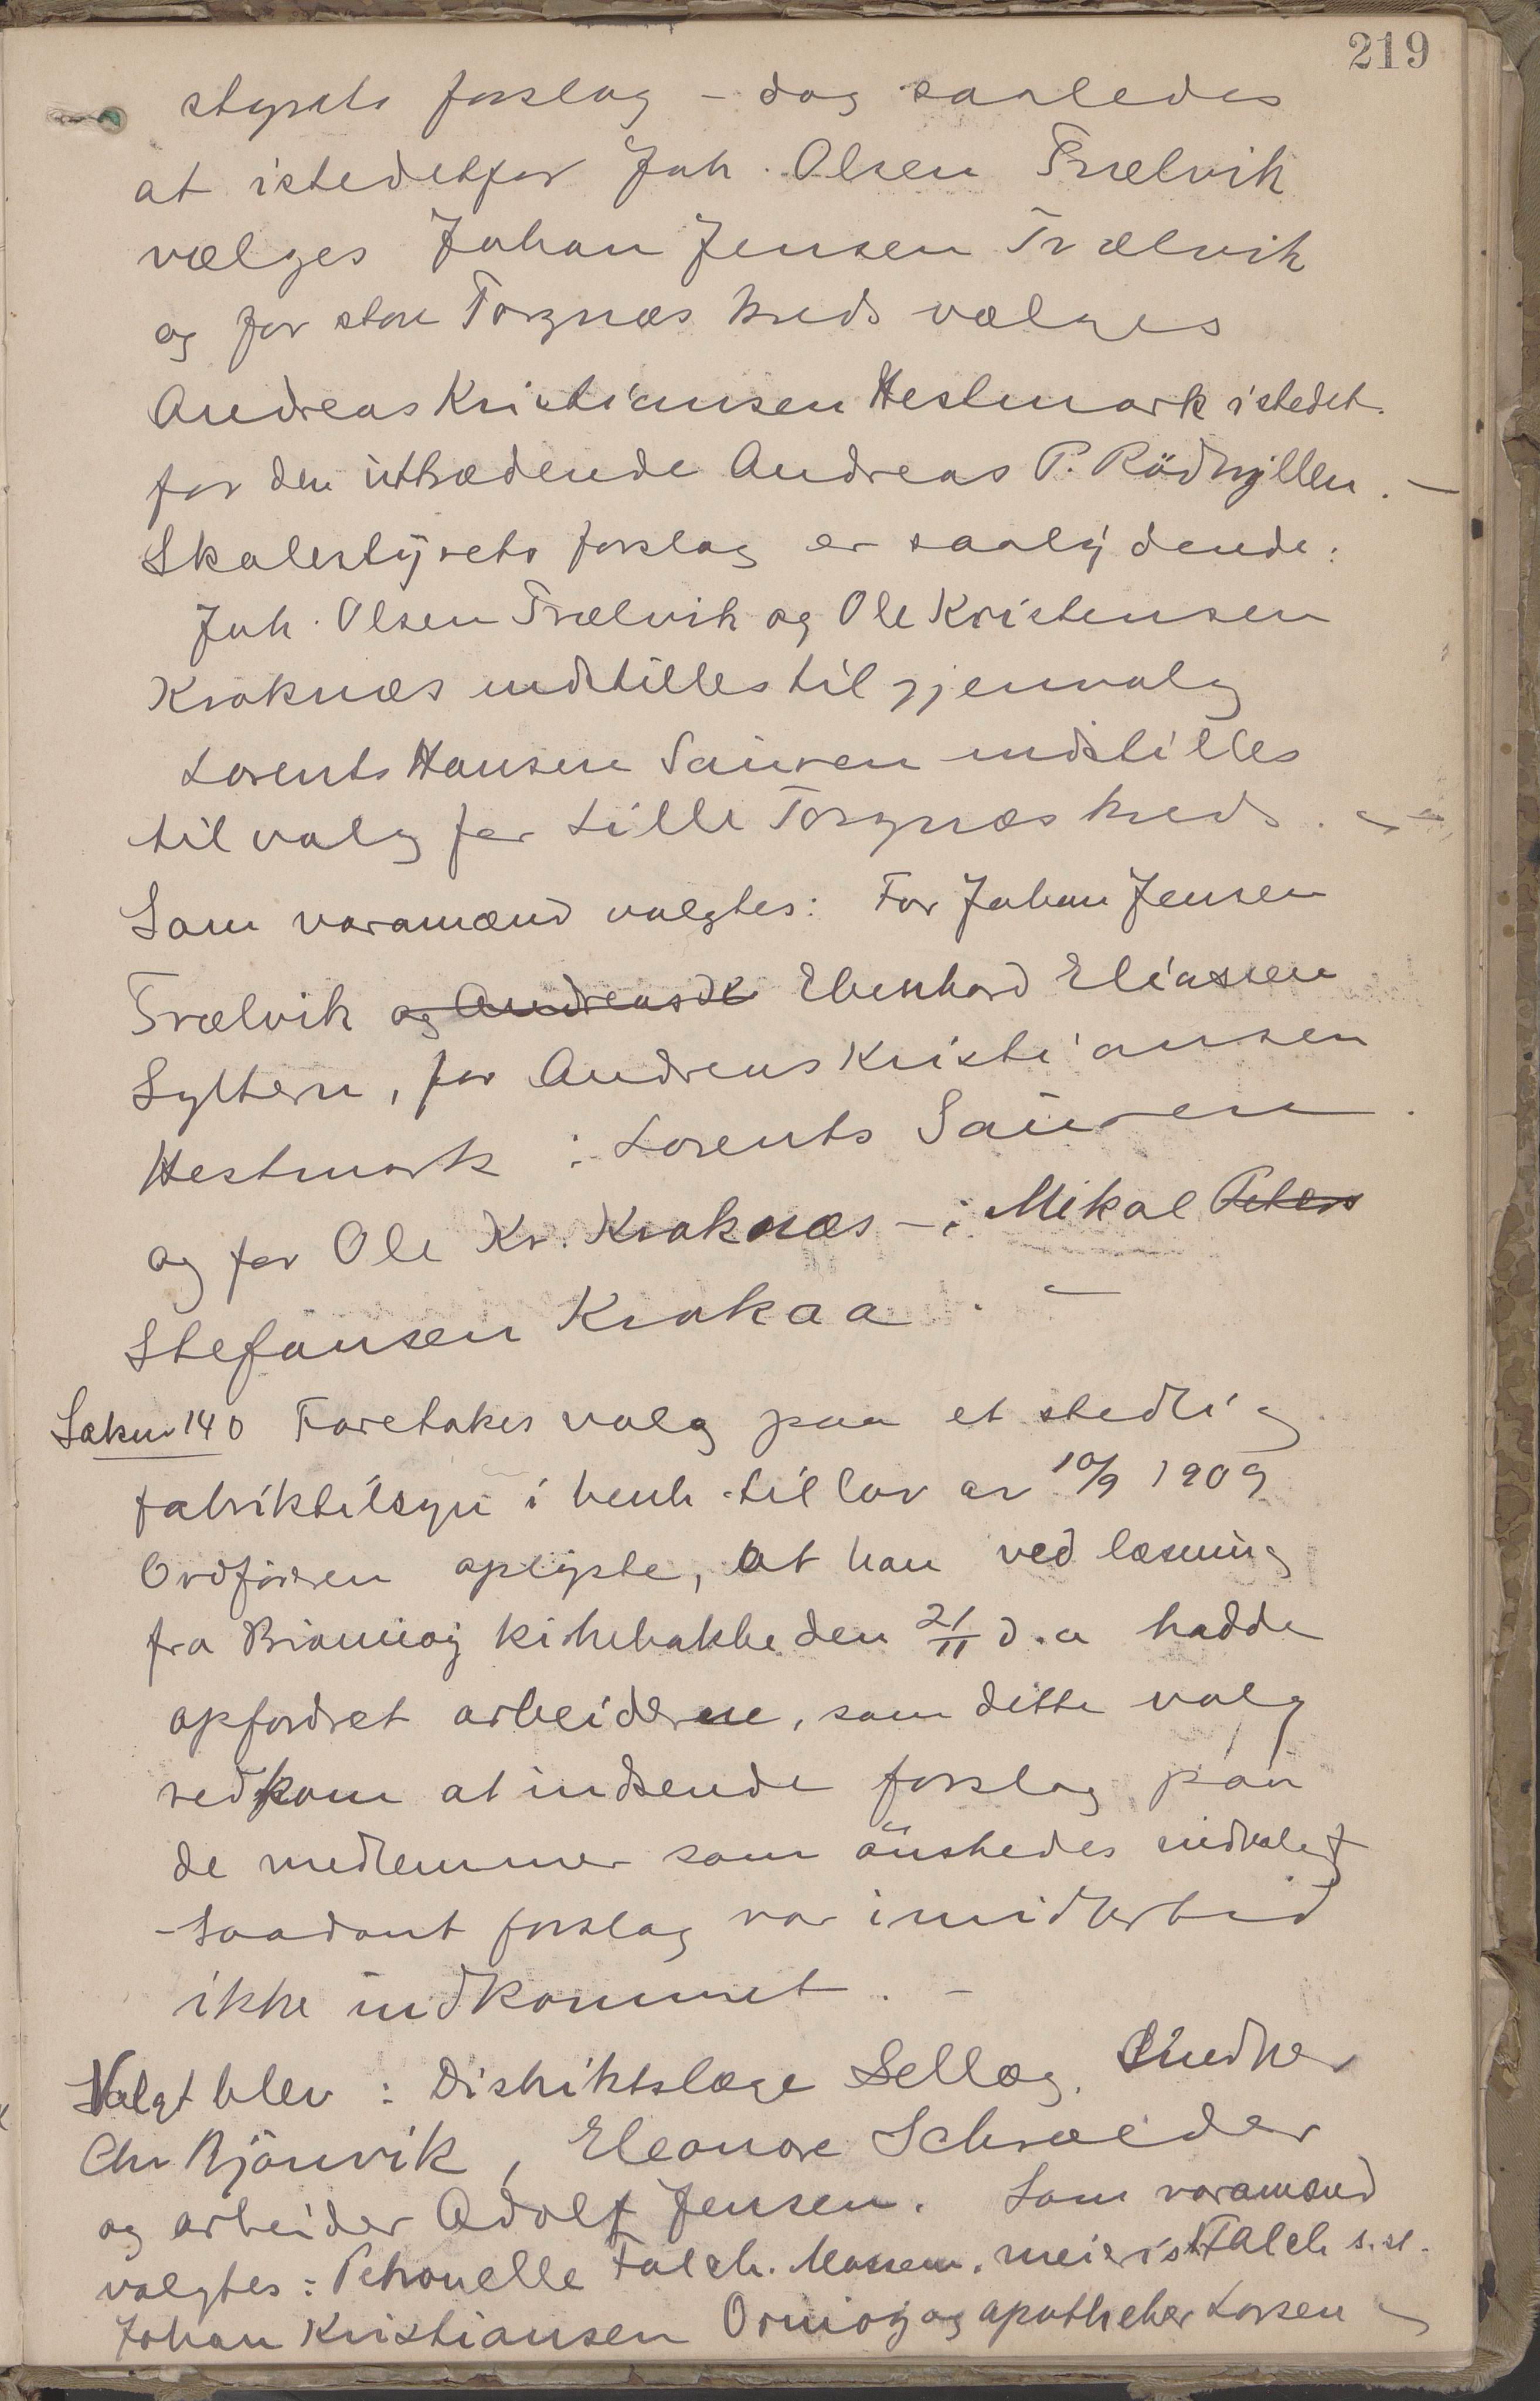 219
styrets forslag - dog saaledes
at istedetfor Joh. Olsen Trælvik
vælges Johan Jensen Trælvik
og for store Torgnæs kreds vælges
Andreas Kristiansen Hestmark istedet
for den uttrædende Andreas P. Rödhyllen. -
Skolestyrets forslag er saalydende:
Joh. Olsen Trælvik og Ole Kristensen
Kroknæs indstilles til gjenvalg
Lorents Hansen Sauren indstilles
til valg for Lille Torgnæs kreds. -
Som varamænd valgtes: For Johan Jensen
Trælvik og Andreas Edenhard Eliassen
Sylteren, for Andreas Kristiansen
Hestmark: Lorents Sauren.
og for Ole Kr. Kroknæs -: Mikal Peters
Stefansen Krokaa. -
Sakn. 140 Foretakes valg paa et stedlig
fabriktilsyn i henh. til lov av 10/9 1909
Ordföreren oplyste, at han ved læsning
fra Brönnöy kirkebakke den 21/11 d.a hadde
opfordret arbeiderne, som dette valg
vedkom at indsende forslag paa
de medlemmer som önskedes indvalgt
- Saadant forslag var imidlertid
ikke indkommet. -
Valgt blev: Distriktslæge Selläg,
Chr Bjönvik, Eleonore Schrøider
og arbeider Adolf Jensen. Som varamænd
valgtes: Petronelle Falch. Mosseen. meierist Falch s.st.
Johan Kristiansen Ornöy og apotheker Larsen -